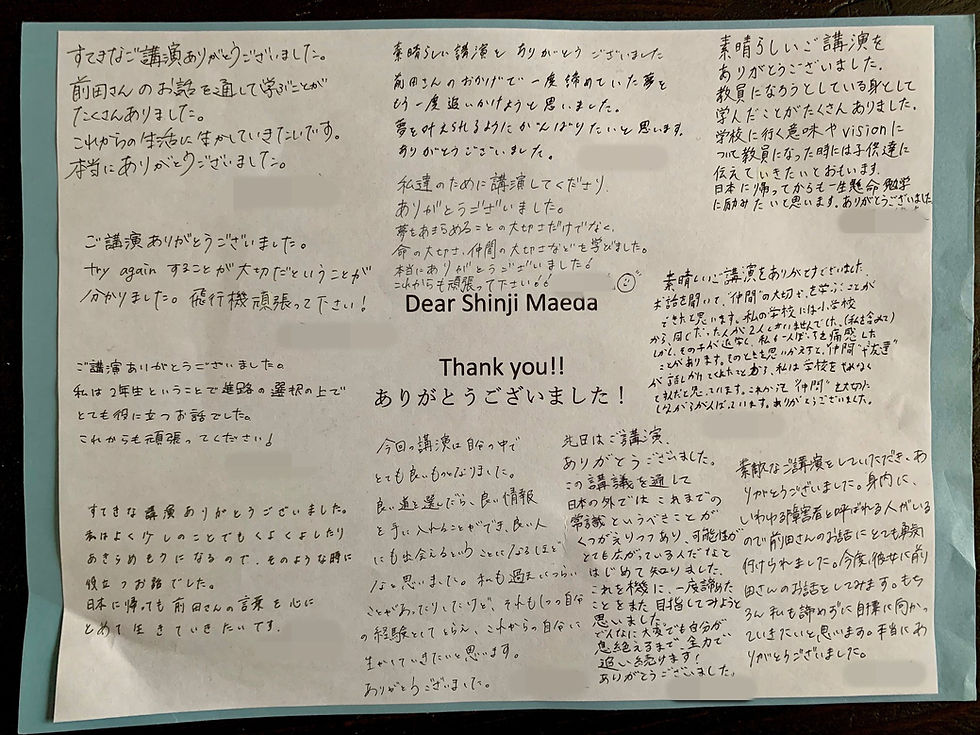 すてきなご講演ありがとうございました。
前田さんのお話を通して学ぶことが
たくさんありました。
これからの生活に生かしていきたいです。
本当にありがとうございました。
素晴らしい講演をありがとうございました
前田さんのおかげで一度諦めていた夢を
もう一度追いかけようと思いました。
夢を叶えられるようにがんばりたいと思います。
ありがとうございました。
素晴らしいご講演を
ありがとうございました.
教員になろうとしている身として
学んだことがたくさんありました。
学校に行く意味やvisionに
ついて教員になった時には子供達に
伝えていきたいとおもいます.
日本に帰ってからも一生懸命勉学
に励みたいと思います.ありがとうございました
私達のために講演してくださり、
ありがとうございました。
夢をあきらめることの大切さだけでなく、
命の大切さ、仲間の大切さなどを学びました。
本当にありがとうございました!
これからも頑張って下さい!!
ご講演ありがとうございました。
try againすることが大切だということが
分かりました。飛行機頑張って下さい!
Dear Shinji Maeda
Thank you!!
ありがとうございました！
素晴しいご講演をありがとうございました.
お話を聞いて、"仲間"の大切さを学ぶことが
できたと思います。私の学校には小学校
から、同じだった人が2人しかいませんでした。(私を含めて)
しかし、その子が
ことがあります。そのときを思いかえすと、"仲間"や"友達"
が話しかけてくれたことから、私は学校をやめなく
てすんだと思っています。これからも"仲間"を大切に
しながらがんばっていきます。ありがとうございました。
ご講演ありがとうございました。
私は2年生ということで進路の選択の上で
とても役に立つお話でした。
これからも頑張ってください!
今回の講演は自分の中で
とても良いものになりました。
良い道を選んだら、良い情報
を手に入れることができ、良い人
にも出会えるということになるほど
なと思いました。私も過去につらい
ことがあったりしたけど、それも1つの自分
の経験としてとらえ、これからの自分に
生かしていきたいと思います。
ありがとうございました。
先日はご講演、
ありがとうございました。
この講義を通して
日本の外ではこれまでの
常識というべきことが
くつがえりつつあり、可能性が
とても広がっている人だなと
はじめて知りました。
これを機に、一度諦めた
ことをまた目指してみようと
思いました。
どんなに大変でも自分が
息絶えるまで、全力で
追い続けます!
ありがとうございました。
素敵なご講演をしていただき、あ
りがとうございました。身内に、
いわゆる障害者と呼ばれる人がいる
ので前田さんのお話にとても勇気
付けられました。今度、彼女に前
田さんのお話をしてみます。もち
ろん私も諦めずに目標に向かっ
ていきたいと思います。本当にあ
りがとうございました。
すてきな講演ありがとうございました。
私はよくけしのことでもくよくよしたり
あきらめモクになるので、そのような時に
役立つお話でした。
日本に帰っても前田さんの言葉を心に
とめて生きていきたいです.